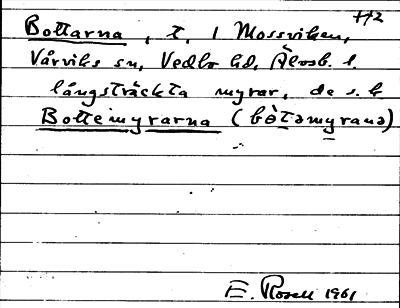 H2
Bottarna, t. 1 Mossviken,
Vårviks sn, Vedbo hd, Älvsb. l.
långsträckta myrar, de s.k
Bottemyrarna (bòtəmyrana)
E. Rosell 1961